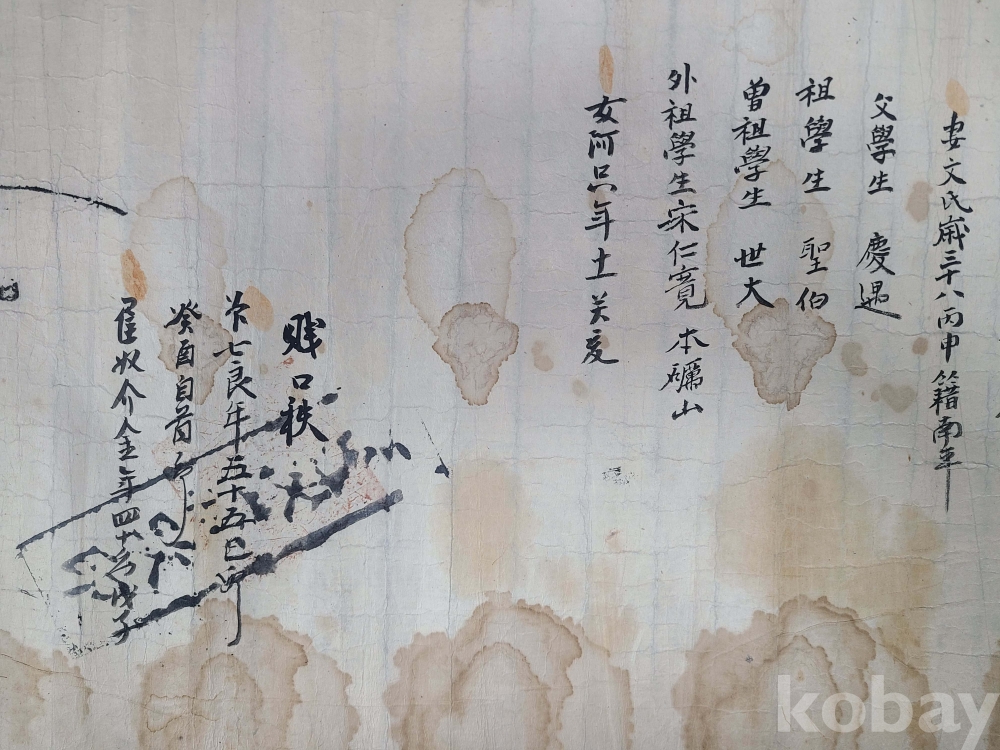 妻文氏歲三十八丙申籍南平
父學生 慶遇
祖學生 聖伯
曾祖學生 世大
外祖學生宋仁寬 本礪山
女阿只年十
賤口秩
七良年五十五己卯
癸酉自首
奴介金年四十戊子
kobay